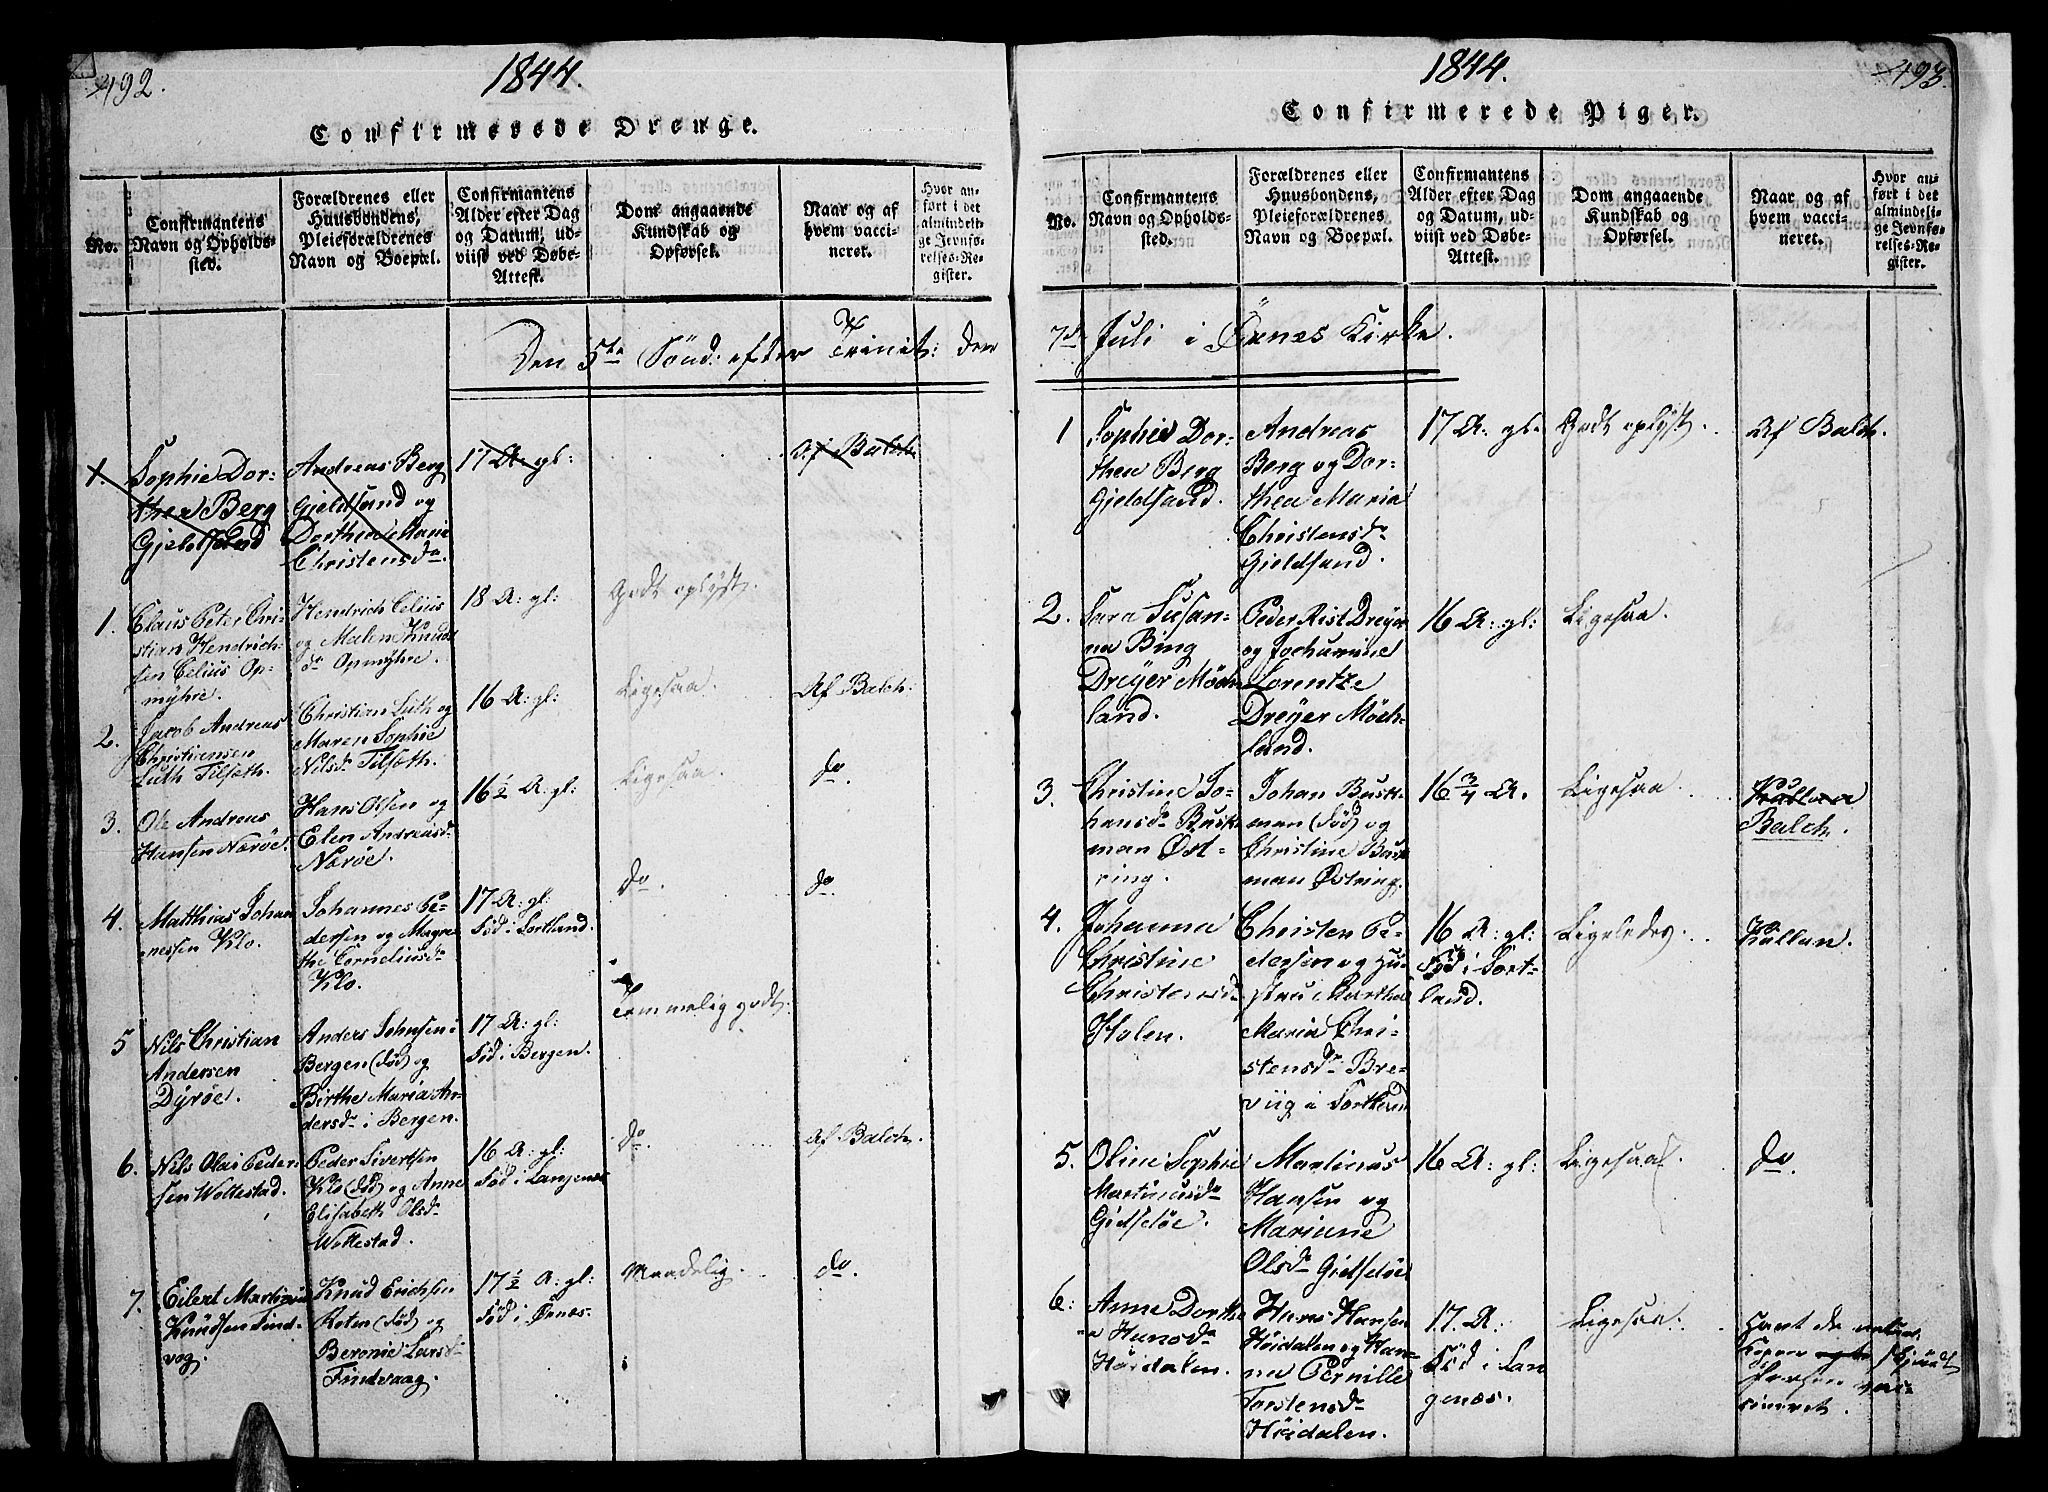 492.
1844.
Confirmerede Drenge.
No.
Confirmantens
Navn og Opholds-
sted.
Forældrenes eller
Huusbondens,
Pleieforældrenes
Navn og Boepæl.
Confirmantens
Alder efter Dag
og Datum, ud-
viist ved Døbe-
Attest.
Dom angaaende
Kundskab og
Opførsel.
Naar og af
hvem vacci-
neret.
Hvor an-
ført i det
almindeli-
ge Jevnfø-
relses-Re-
gister.
Den 5te Sönd: efter Trinit: den
1.
Sophie Dor-
thea Berg
Gjeldsand
Andreas Berg
Gjeldsand og
Dorthea Marie
Christensda.
17 A. gl:
Af Balch
1.
Claus Peter Chri-
stian Hendrich-
sen Celius Op-
mÿhre.
Hendrich Celius
og Malen Knuds
da Opmÿhre.
18 A: gl:
Godt oplÿst.
2.
Jacob Andreas
Christiensen
Luth Tilseth.
Christian Luth og
Maren Sophie
Nilsda Tilseth.
16 A: gl:
Ligesaa.
Af Balch:
3.
Ole Andreas
Hansen Nærøe.
Hans Olsen og
Elen Andreasda
Nærøe.
16 1/2 A: gl:
Ligesaa.
do.
4.
Matthias Johan
nessen Klo.
Johannes Pe-
dersen og Magre-
the Corneliusda
Klo.
17 A: gl:
Föd i Sortland.
do.
do.
5
Nils Christian
Andersen
Dÿröe.
Anders Johnsen i
Bergen (död) og
Birthe Maria An-
dersda i Bergen.
17 A: gl:
Föd i Bergen.
Temmelig godt.
6.
Nils Olai Peder-
sen Wottestad.
Peder Sivertsen
Klo (död) og Anne
Elisabeth Olsda
Wottestad.
16 A: gl:
Föd i Langenes
do.
Af Balch.
7.
Eilert Martinus
Knudsen Find-
vog.
Knud Erichsen
Roten (död) og
Beronie Larsda
Findvaag.
17 1/2 A: gl:
Föd i Öxnes.
Maadelig.
do.
1844.
493.
Confirmerede Piger.
No.
Confirmantens
Navn og Opholds-
sted.
Forældrenes eller
Huusbondens,
Pleieforældrenes
Navn og Boepæl.
Confirmantens
Alder efter Dag
og Datum, ud-
viist ved Døbe-
Attest.
Dom angaaende
Kundskab og
Opførsel.
Naar og af
hvem vacci-
neret.
Hvor an-
ført i det
almindeli-
ge Jevnfø-
relses-Re-
gister.
7de Juli i Öxnes Kirke.
1
Sophie Dor-
thea Berg
Gjeldsand.
Andreas
Berg og Dor-
thea Maria
Christensda
Gjeldsand.
17 A: gl.
Godt oplÿst.
Af Balch.
2.
Sara Susan-
na Bing
Dreÿer Möck-
land.
Peder Rist Dreÿer
og Jochumine
Lorentze
Dreÿer Möck-
land.
16 A: gl:
Ligesaa.
3.
Christine Jo-
hansda Busk-
man Øst-
ring.
Johan Busk-
man (död) og
Christine Busk
man Østring.
16 3/4 A.
Ligesaa
Balch.
4.
Johanna
Christine
Christensda
Holen.
Christen Pe-
dersen og Hu-
stru Marthe
Maria Chri-
stensda: Bre-
viig i Sortland
16 A: gl:
Föd i Sort-
land.
Ligeledes.
Kullan.
5.
Oline Sophie
Martinusda
Gidsöe.
Martinus
Hansen og
Mariane
Olsda Gidsöe
16 A: gl:
Ligesaa.
do
6:
Anne Dorthe
a Hansda
Höidalen.
Hans Hansen
Höidalen og Han-
na Pernille
Torstensda
Höidalen.
17. A:
Föd i Lan
genæs.
Ligesaa.
Havt de
Kopper
vac-
cineret.